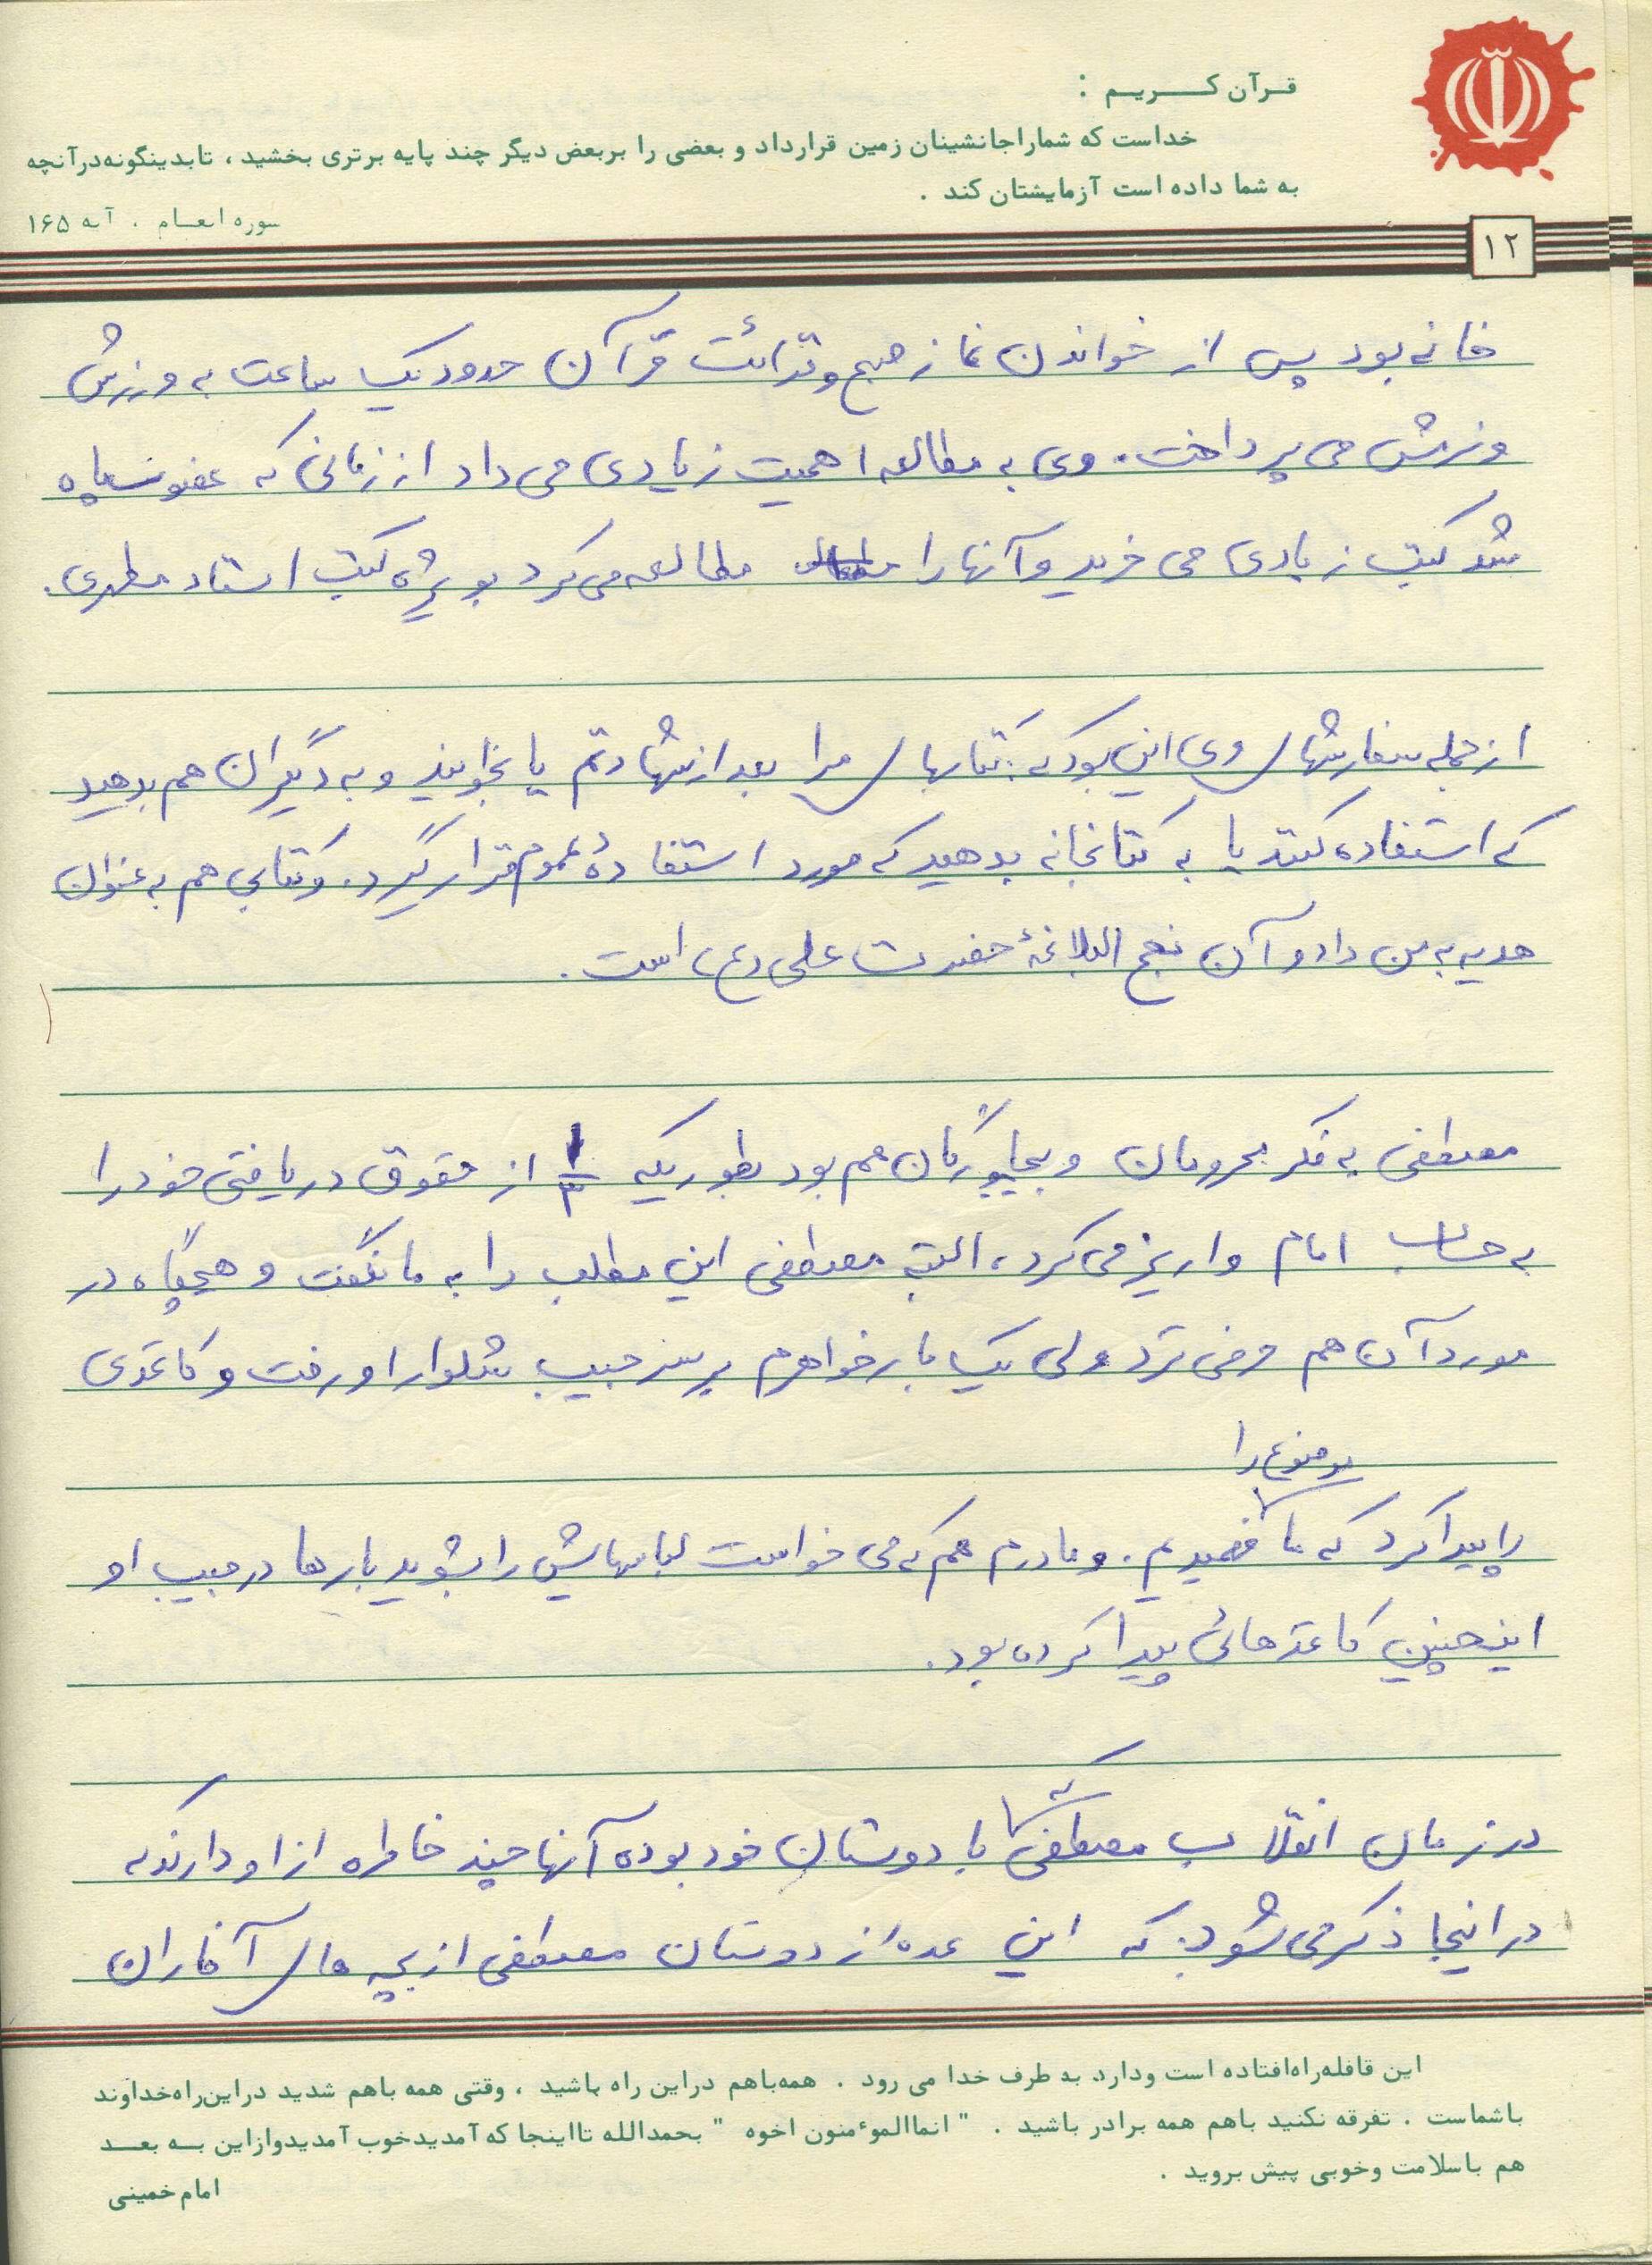 قرآن کریم :
خداست که شما را جانشینان زمین قرارداد و بعضی را بربعض دیگر چند پایه برتری بخشید ، تا بدینگونه درآنچه
به شما داده است آزمایشتان کند .
سوره انعام . آیه ۱۶۵
۱۲
خانه بود پس از خواندن نماز صبح و قرائت قرآن حدود یک ساعت به ورزش
ورزش می پرداخت. وی به مطالعه اهمیت زیادی می داد از زمانی که عضو سپاه
شد کتب زیادی می خرید و آنها را مطالعه می کرد بویژه کتب استاد مطهری.
از جمله سفارشهای وی این بود که: کتابهای مرا بعد از شهادتم یا بخوانید و به دیگران هم بدهید
که استفاده کنند یا به کتابخانه بدهید که مورد استفادهٔ عموم قرار گیرد. و کتابی هم به عنوان
هدیه به من داد و آن نهج البلاغهٔ حضرت علی (ع) است.
مصطفی به فکر محرومان و بیچارگان هم بود بطوریکه ۱/۳ از حقوق دریافتی خود را
به حساب امام واریز می کرد، البته مصطفی این مطلب را به ما نگفت و هیچگاه در
مورد آن هم حرفی نزد ولی یک بار خواهرم بر سر جیب شلوار او رفت و کاغذی
موضوع را
را پیدا کرد که ما فهمیدیم. و مادرم هم که می خواست لباسهایش را بشوید بارها در جیب او
اینچنین کاغذهائی پیدا کرده بود.
که
در زمان انقلاب مصطفی با دوستان خود بوده آنها چند خاطره از او دارند که
در اینجا ذکر می شود: که این عده از دوستان مصطفی از بچه های آغاران
این قافله راه افتاده است و دارد به طرف خدا می رود . همه باهم دراین راه باشید ، وقتی همه باهم شدید دراین راه خداوند
باشماست . تفرقه نکنید باهم همه برادر باشید . " انما المؤمنون اخوه " بحمدالله تا اینجا که آمدید خوب آمدید و از این به بعد
هم با سلامت و خوبی پیش بروید .
امام خمینی